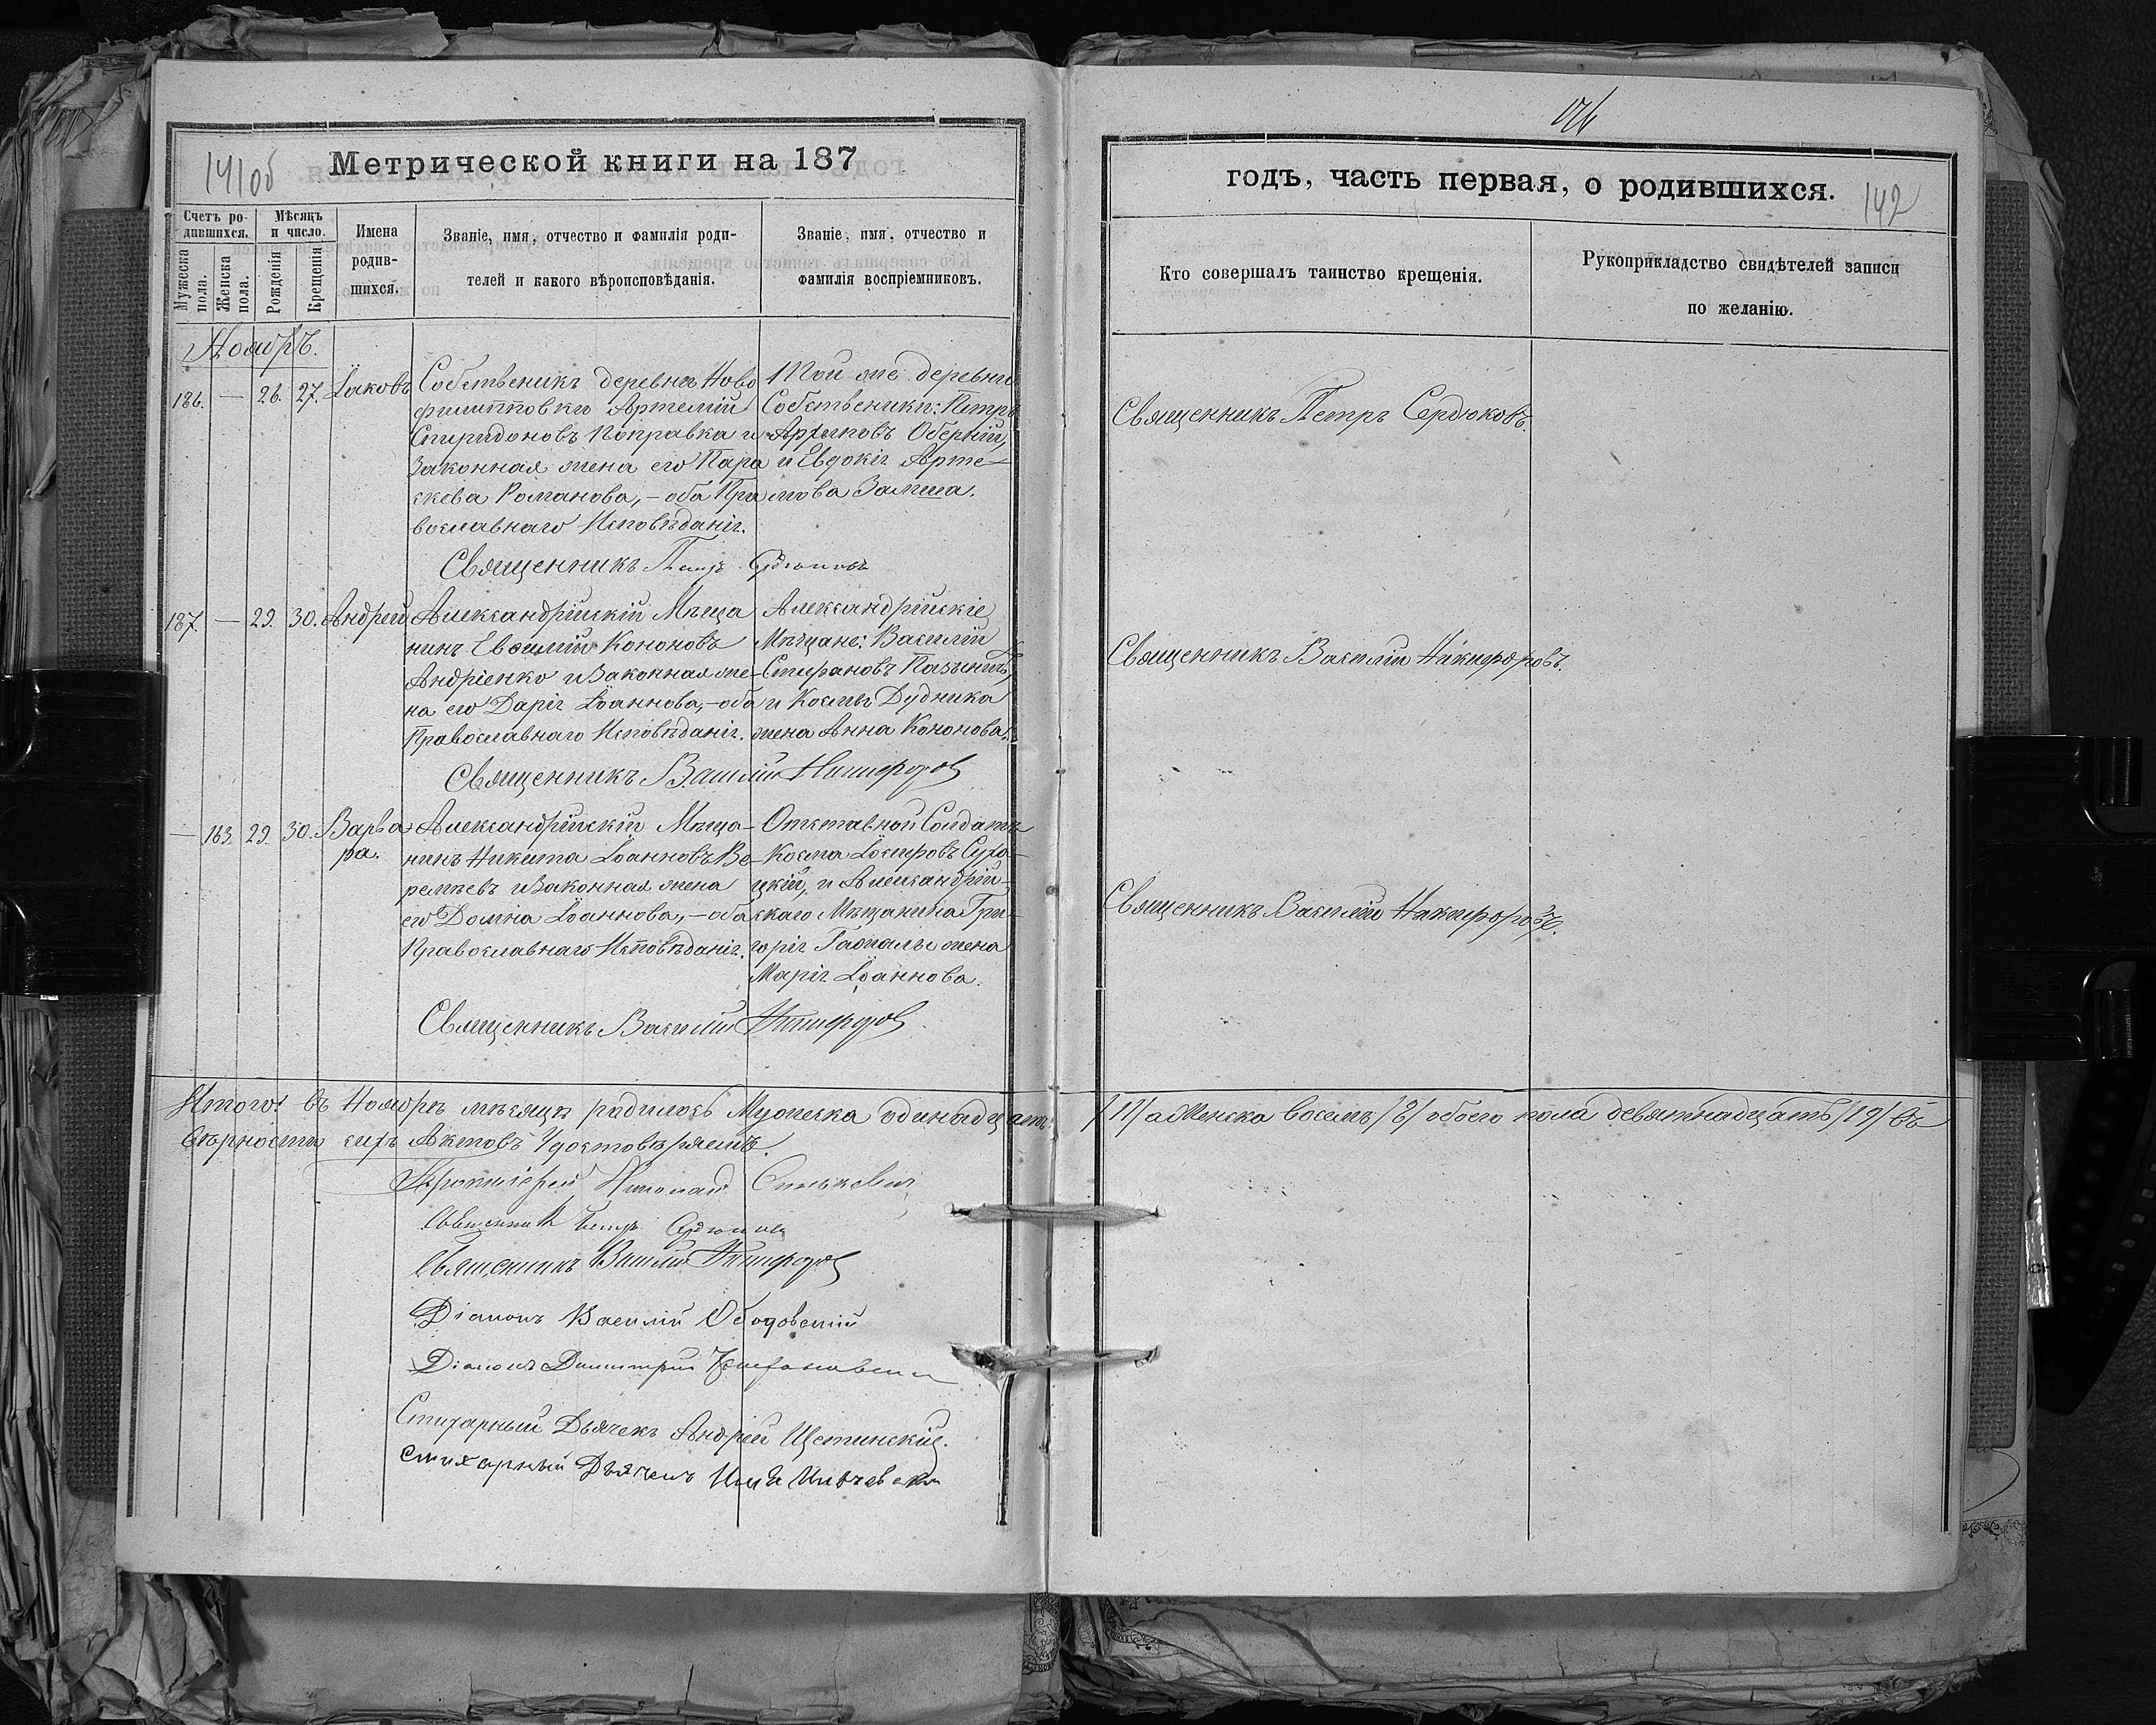 141об
Метрической книги на 187
Счетъ родившихся.
Мѣсяцъ и число.
Мужеска пола.
Женска пола.
Рожденія
Крещенія
Имена родив-
шихся.
Званіе, имя, отчество и фамилія роди-
телей и какого вѣроисповѣданія.
Званіе, имя, отчество и
фамилія воспріемниковъ.
Ноябрь.
186. — 26. 27. Іаковъ
Собственикъ деревни Ново
филипповки Артемій
Спиридоновъ Поправка и
законная жена его Пара
скева Романова, – оба Пра
вославнаго Исповѣданія.
Той же деревни
Собственики: Петръ
Архиповъ Оберній,
и Евдокія Арте-
мова Замша.
Священникъ Петръ Сердюковъ
187. — 29. 30. Андрей
Александрійскій Мѣща
нинъ Евсимій Кононовъ
Андріенко и Законная же-
на его Дарія Іоаннова, – оба
Православнаго Исповѣданія.
Александрійскіе
Мѣщане: Василій
Стефановъ
и Космы Дудника
жена Анна Кононова.
Священникъ Василій Никифоровъ
— 163. 29. 30. Варва
ра.
Александрійскій Мѣща-
нинъ Никита Іоанновъ Ве-
ремѣевъ и Законная жена
его Домна Іоаннова, – оба
Православнаго Исповѣданія.
Отставной Солдатъ
Косма Іосифовъ Суха-
цкій, и Александрій-
скаго Мѣщанина Гри-
горія жена
Марія Іоаннова.
Священникъ Василій Никифоровъ
Итого: въ Ноябрѣ мѣсяцѣ родилось Мужеска одинадцать
вѣрности сихъ Актовъ Удостовѣряемъ.
Протоіерей Николай Синькевич
Священникъ Петръ Сердюковъ
Священникъ Василій Никифоровъ
Діаконъ Василій Ободовскій
Діаконъ Димитрій
Стихарный Дьячекъ Андрей Щетинскій.
Стихарный Дьячекъ Илья
142
годъ, часть первая, о родившихся.
Кто совершалъ таинство крещенія.
Рукоприкладство свидѣтелей записи
по желанію.
Священникъ Петръ Сердюковъ.
Священникъ Василій Никифоровъ.
Священникъ Василій Никифоровъ.
/11/ а Женска восемь /8/ обоего пола девятнадцать /19/ въ